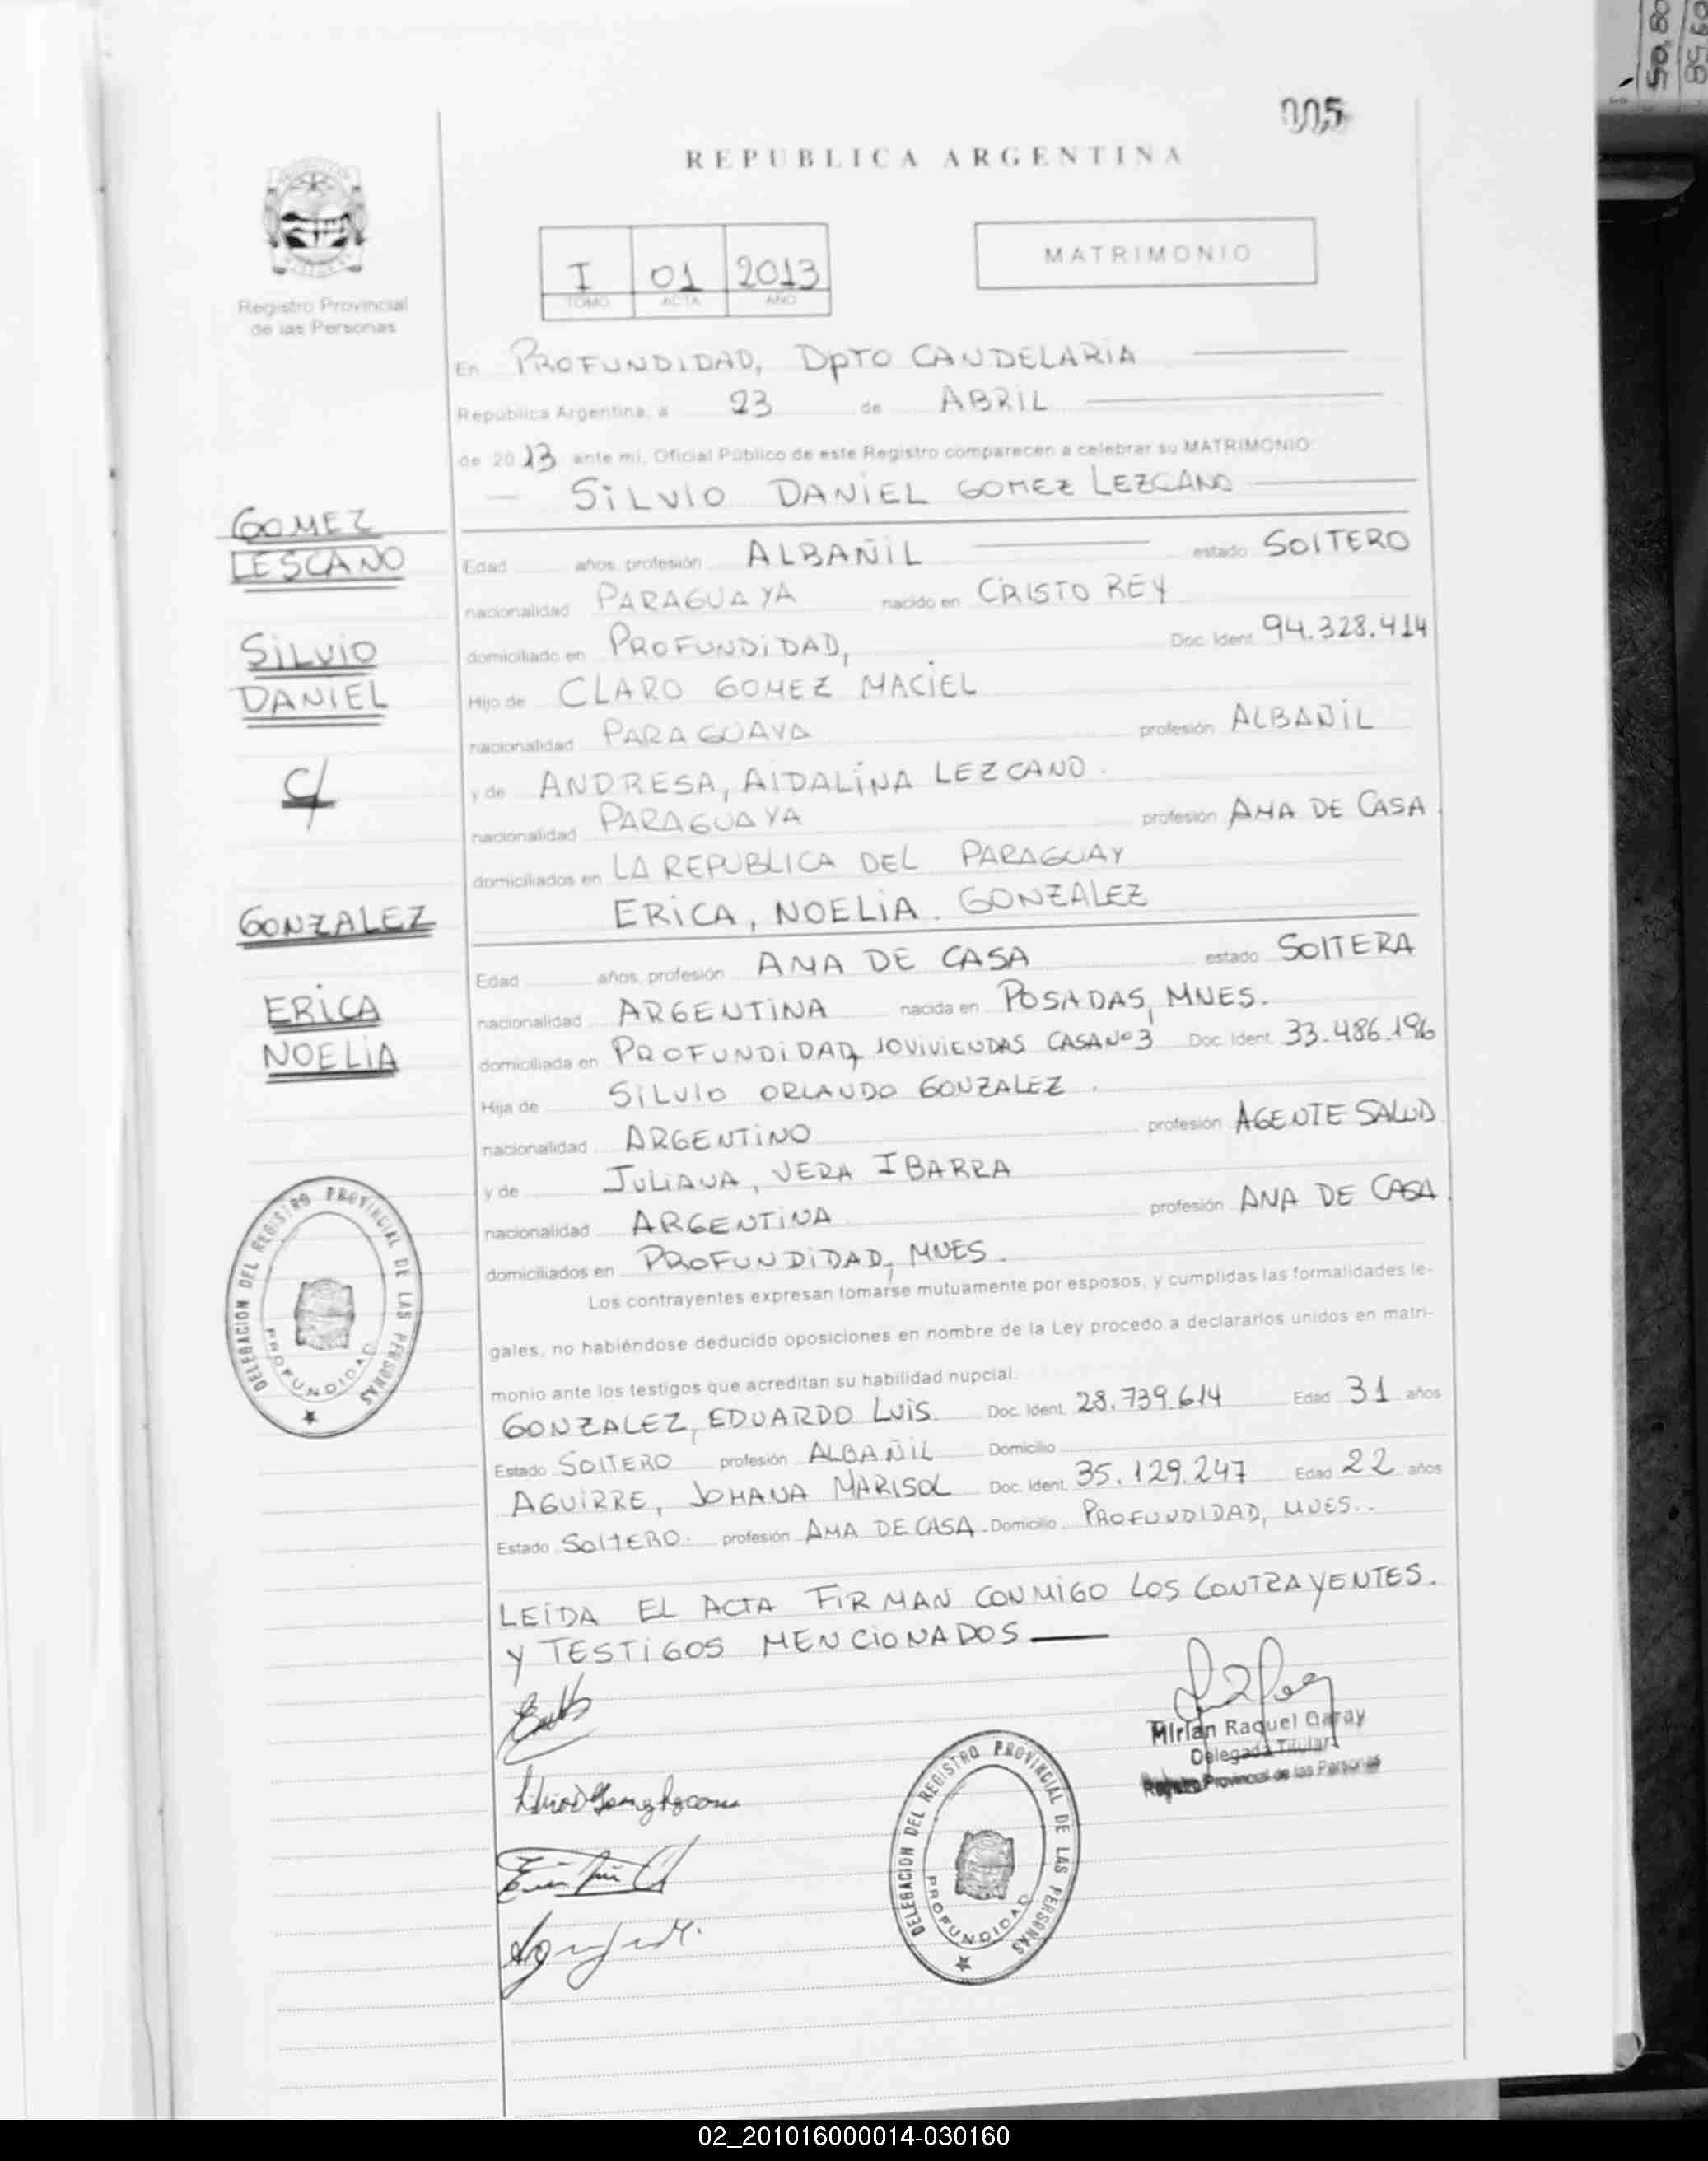 005
REPUBLICA ARGENTINA
I 01 2013
TOMO ACTA AÑO
MATRIMONIO
Registro Provincial
de las Personas
En PROFUNDIDAD, DPTO CANDELARIA
República Argentina, a 23 de ABRIL
de 2013 ante mi, Oficial Público de este Registro comparecen a celebrar su MATRIMONIO:
SILVIO DANIEL GOMEZ LEZCANO
GOMEZ
LESCANO
SILVIO
DANIEL
C/
GONZALEZ
ERICA
NOELIA
Edad años, profesión ALBAÑIL estado SOLTERO
nacionalidad PARAGUAYA nacido en CRISTO REY
domiciliado en PROFUNDIDAD, Doc. Ident. 94.328.414
Hijo de CLARO GOMEZ MACIEL
nacionalidad PARAGUAYA profesión ALBAÑIL
y de ANDRESA, AIDALINA LEZCANO.
nacionalidad PARAGUAYA profesión AMA DE CASA.
domiciliados en LA REPUBLICA DEL PARAGUAY
ERICA, NOELIA. GONZALEZ
Edad años, profesión AMA DE CASA estado SOLTERA
nacionalidad ARGENTINA nacida en POSADAS, MNES.
domiciliada en PROFUNDIDAD, 10 VIVIENDAS CASA Nº 3 Doc. Ident. 33.486.196
Hija de SILVIO ORLANDO GONZALEZ.
nacionalidad ARGENTINO profesión AGENTE SALUD
y de JULIANA, VERA IBARRA
nacionalidad ARGENTINA profesión AMA DE CASA.
domiciliados en PROFUNDIDAD, MNES.
Los contrayentes expresan tomarse mutuamente por esposos, y cumplidas las formalidades le-
gales, no habiéndose deducido oposiciones en nombre de la Ley procedo a declararlos unidos en matri-
monio ante los testigos que acreditan su habilidad nupcial.
GONZALEZ, EDUARDO LUIS. Doc. Ident. 28.739.614 Edad 31 años
Estado SOLTERO profesión ALBAÑIL Domicilio
AGUIRRE, JOHANA MARISOL Doc. Ident. 35.129.247 Edad 22 años
Estado SOLTERO. profesión AMA DE CASA. Domicilio PROFUNDIDAD, MNES..
LEIDA EL ACTA FIRMAN CONMIGO LOS CONTRAYENTES.
Y TESTIGOS MENCIONADOS
DELEGACION DEL REGISTRO PROVINCIAL DE LAS PERSONAS
PROFUNDIDAD
Mirian Raquel Garay
Delegada Titular
Registro Provincial de las Personas
DELEGACION DEL REGISTRO PROVINCIAL DE LAS PERSONAS
PROFUNDIDAD
02_201016000014-030160